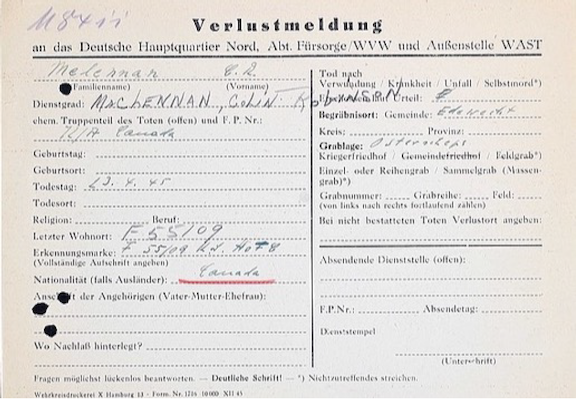 Verlustmeldung
an das Deutsche Hauptquartier Nord, Abt. Fürsorge/WVW und Außenstelle WAST
Melennan C. R.
(Familienname) (Vorname)
Dienstgrad: MACLENNAN, COLIN ROBINSON
ehem. Truppenteil des Toten (offen) und F. P. Nr.:
Canada
Geburtstag:
Geburtsort:
Todestag: 23. 4. 45
Todesort:
Religion: Beruf:
Letzter Wohnort: F 55/09
Erkennungsmarke: F 55/09
(Vollständige Aufschrift angeben)
Nationalität (falls Ausländer): Canada
Anschrift der Angehörigen (Vater-Mutter-Ehefrau):
Wo Nachlaß hinterlegt?
Tod nach
Verwundung / Krankheit / Unfall / Selbstmord*)
Urteil:
Begräbnisort: Gemeinde: Edewecht
Kreis: Provinz:
Grablage: Osterscheps
Kriegerfriedhof / Gemeindefriedhof / Feldgrab*)
Einzel- oder Reihengrab / Sammelgrab (Massengrab)*)
Grabnummer: Grabreihe: Feld:
(von links nach rechts fortlaufend zählen)
Bei nicht bestatteten Toten Verlustort angeben:
Absendende Dienststelle (offen):
F.P.Nr.: Absendetag:
Dienststempel
(Unterschrift)
Fragen möglichst lückenlos beantworten. — Deutliche Schrift! — *) Nichtzutreffendes streichen.
Wehrkreisdruckerei X Hamburg 13 - Form. Nr. 1724 10000 XII 45